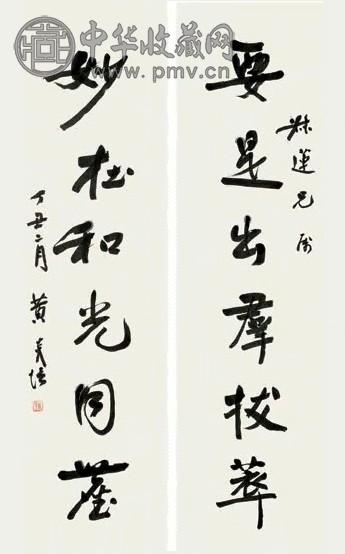 中华收藏网
www.pmv.cn
要是出羣拔萃
蓮兄属
妙在和光同塵
丁丑二月 黄炎培